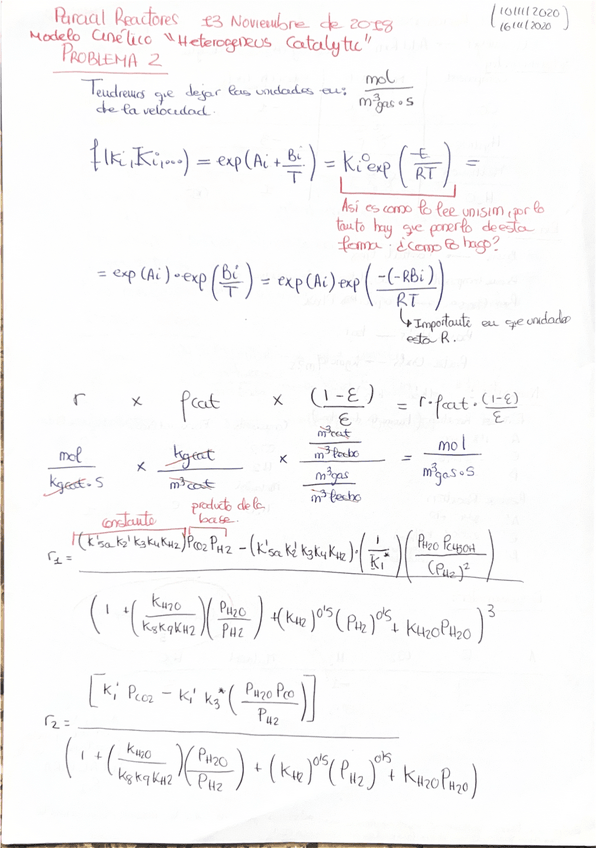 Parcial Reactores 13 Noviembre de 2018
(10/11/2020)
16/11/2020
Modelo Cinético "Heterogeneus Catalytic"
PROBLEMA 2
Tendremos que dejar las unidades en: mol / m³gas·s
de la velocidad.
f(Ki, Ki,...) = exp(Ai + Bi/T) = Ki° exp(E/RT) =
Asi es como lo lee unisim, por lo
tanto hay que ponerlo de esta
forma. ¿Como lo hago?
= exp(Ai)·exp(Bi/T) = exp(Ai) exp(-(-RBi)/RT)
↳ Importante en que unidades
esta R.
r × ρcat × (1-ε)/ε = r·ρcat·(1-ε)/ε
mol/kgcat·s × kgcat/m³cat × (m³cat/m³lecho)/(m³gas/m³lecho) = mol/m³gas·s
constante producto de la
base.
r1 = (K'5a K2' K3 K4 KH2) PCO2 PH2 - (K'5a K2' K3 K4 KH2)·(1/K1*)(PH2O PCH3OH/(PH2)²)
(1 + (KH2O/K8K9KH2)(PH2O/PH2) + (KH2)^0'5 (PH2)^0'5 + KH2O PH2O)³
[K1' PCO2 - K1' K3* (PH2O PCO/PH2)]
r2 =
(1 + (KH2O/K8K9KH2)(PH2O/PH2) + (KH2)^0'5 (PH2)^0'5 + KH2O PH2O)